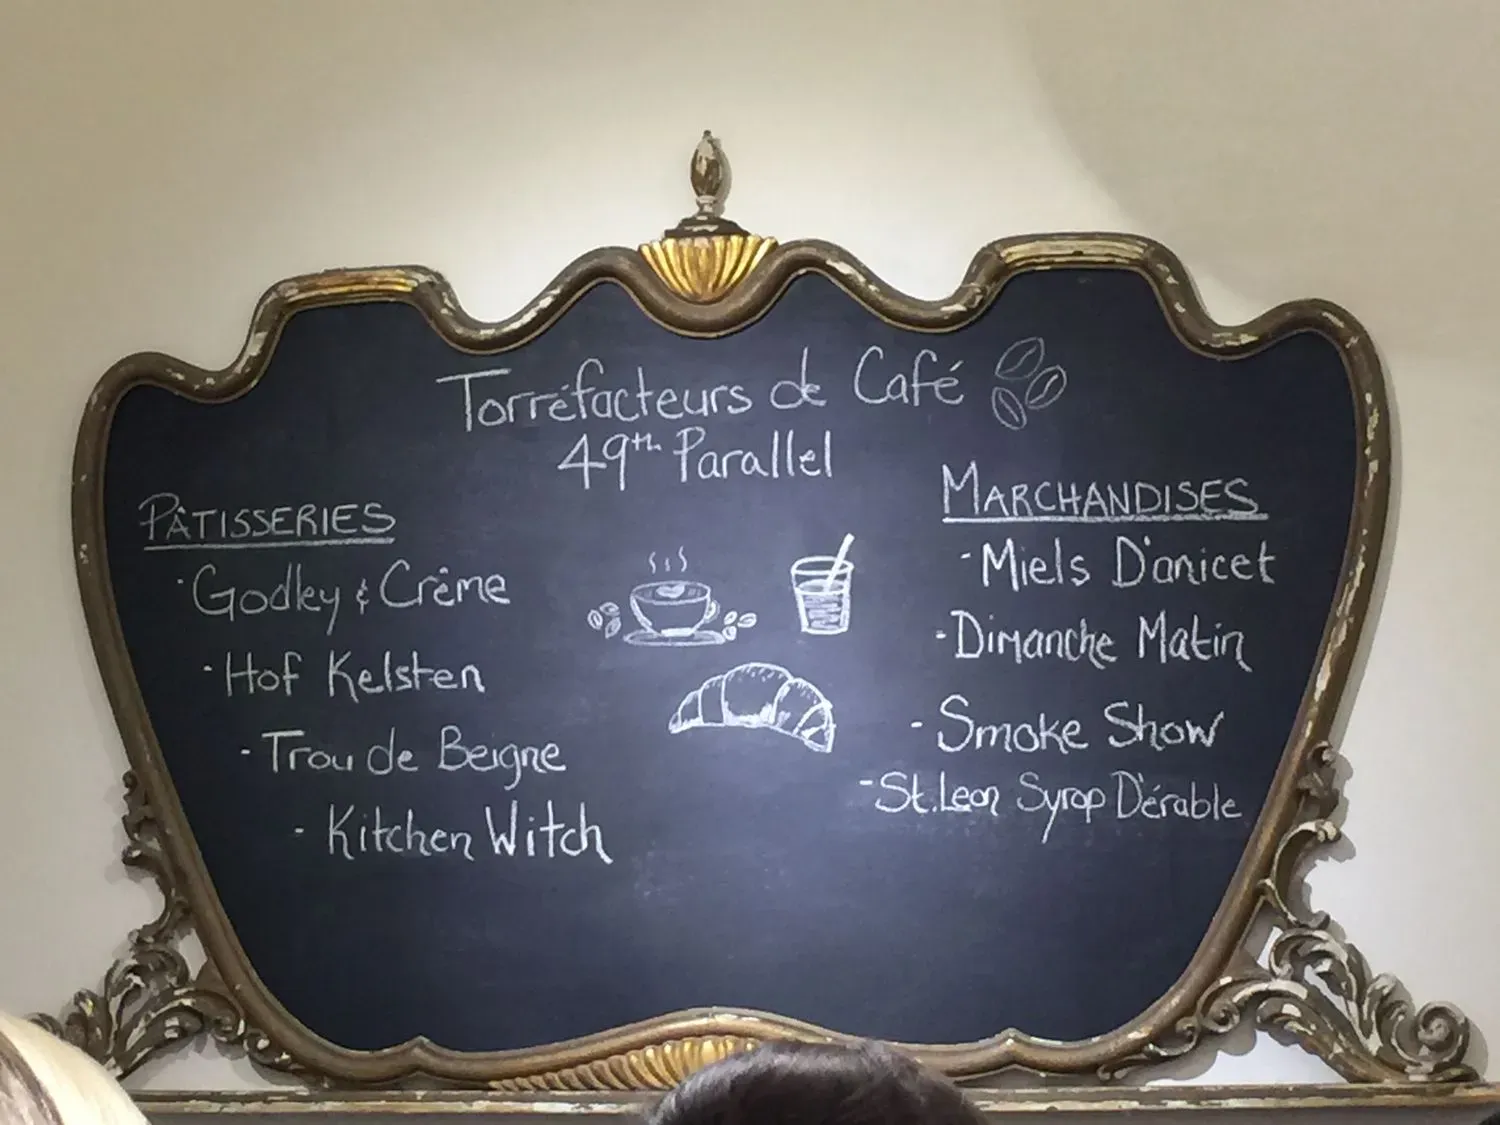 Torréfacteurs de Café
49th Parallel
PÂTISSERIES
· Godley & Crème
- Hof Kelsten
- Trou de Beigne
- Kitchen Witch
MARCHANDISES
- Miels D'anicet
- Dimanche Matin
- Smoke Show
- St. Leon Syrop D'érable